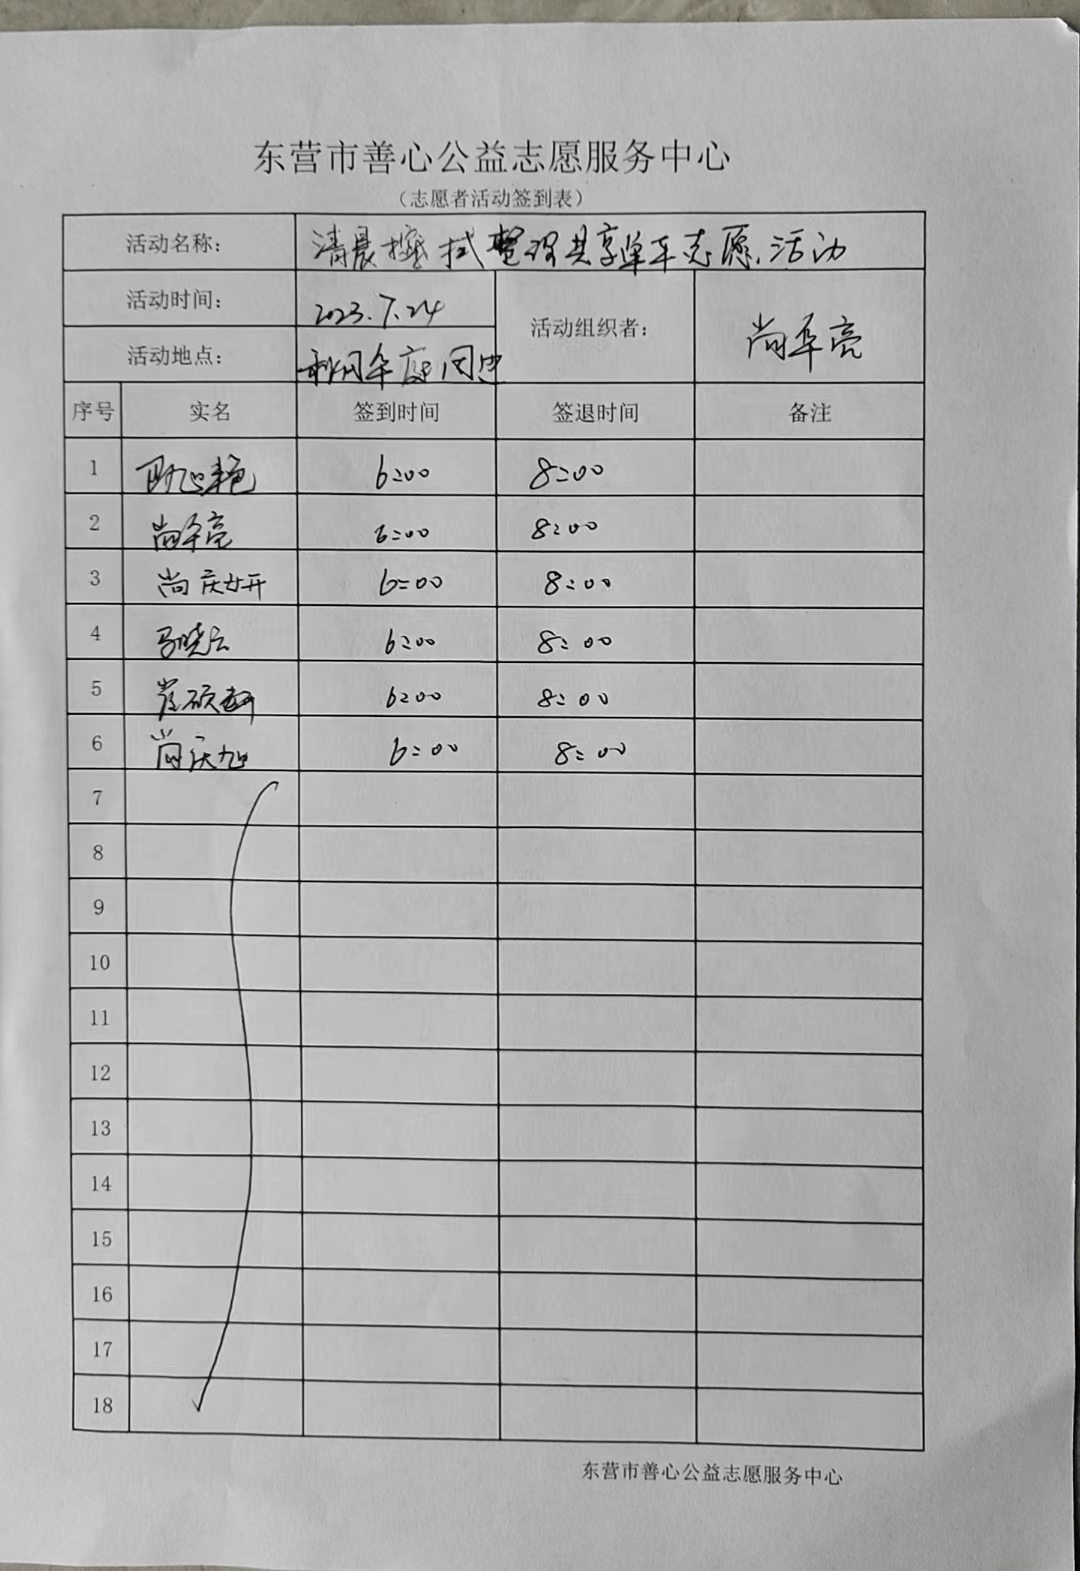 东营市善心公益志愿服务中心
（志愿者活动签到表）
活动名称： 清晨擦拭整理共享单车志愿活动
活动时间： 2023.7.24 活动组织者： 尚华亮
活动地点： 周边
序号 实名 签到时间 签退时间 备注
1 6:00 8:00
2 尚华亮 6:00 8:00
3 尚庆妍 6:00 8:00
4 马晓云 6:00 8:00
5 6:00 8:00
6 尚庆旭 6:00 8:00
7
8
9
10
11
12
13
14
15
16
17
18
东营市善心公益志愿服务中心